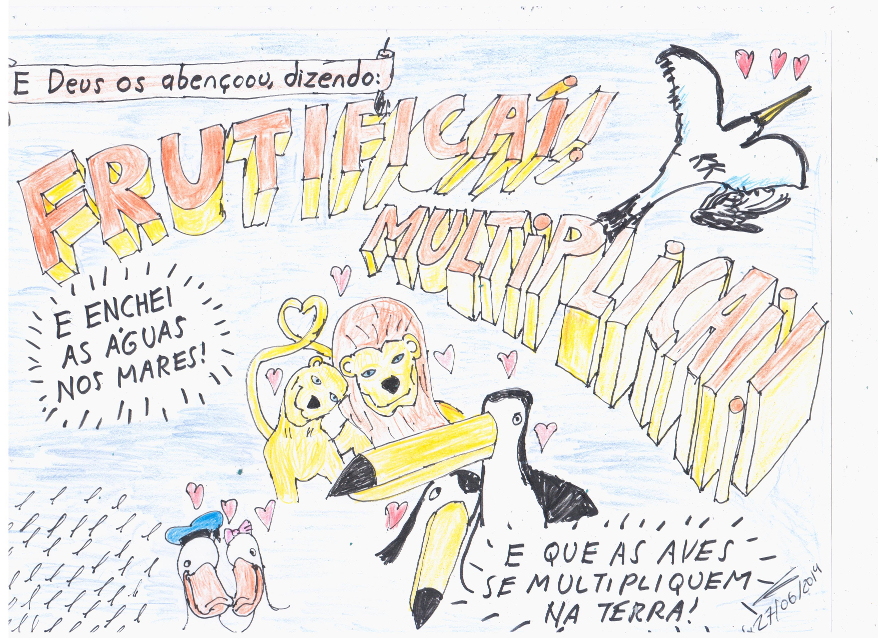 E Deus os abençoou, dizendo:
FRUTIFICAÍ!
MULTiPLiCAi!
E ENCHEI
AS ÁGUAS
NOS MARES!
E QUE AS AVES
SE MULTIPLIQUEM
NA TERRA!
27/06/2014